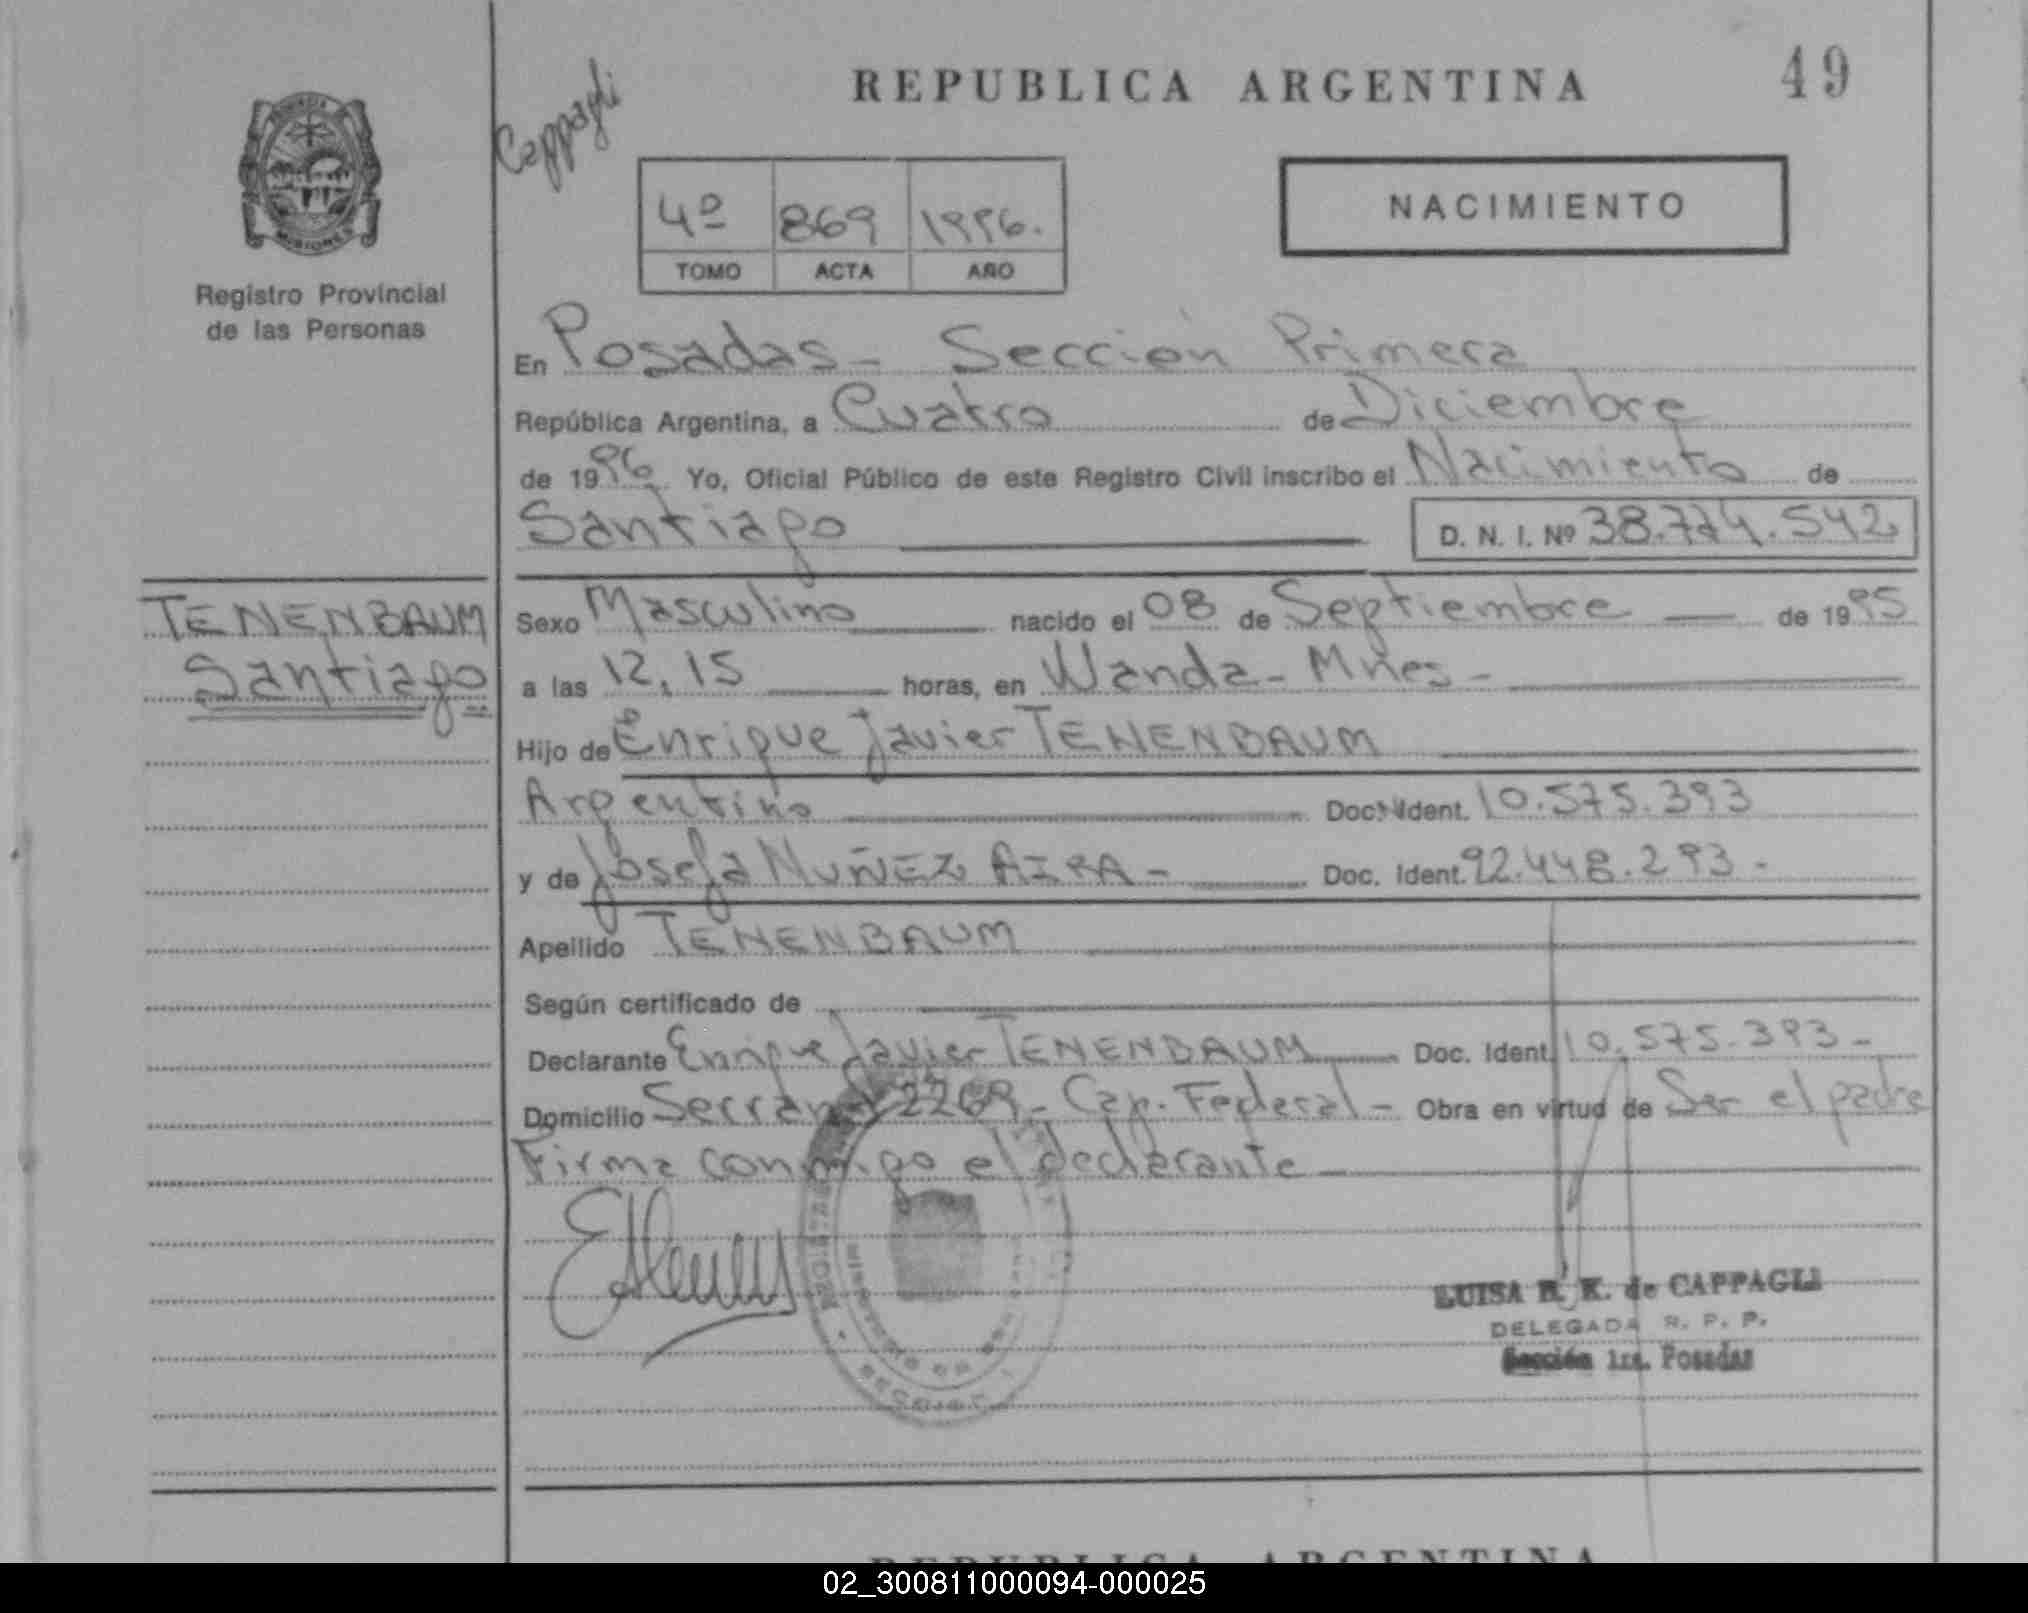 REPUBLICA ARGENTINA
49
Cappagli
4º 869 1996.
TOMO ACTA AÑO
NACIMIENTO
MISIONES
Registro Provincial
de las Personas
En Posadas - Sección Primera
República Argentina, a Cuatro de Diciembre
de 1996 Yo, Oficial Público de este Registro Civil inscribo el Nacimiento de
Santiago D. N. I. Nº 38.774.542
TENENBAUM
Santiago
Sexo Masculino nacido el 08 de Septiembre de 1995
a las 12,15 horas, en Wanda - Mnes -
Hijo de Enrique Javier TENENBAUM
Argentino Doc. Ident. 10.575.393
y de Josefa NUÑEZ AIRA - Doc. Ident. 92.448.293 -
Apellido TENENBAUM
Según certificado de
Declarante Enrique Javier TENENBAUM Doc. Ident. 10.575.393 -
Domicilio Serrano 2269 - Cap. Federal - Obra en virtud de Ser el padre
Firma conmigo el declarante
LUISA K. de CAPPAGLI
DELEGADA R. P. P.
Sección 1ra. Posadas
REPUBLICA ARGENTINA
02_300811000094-000025